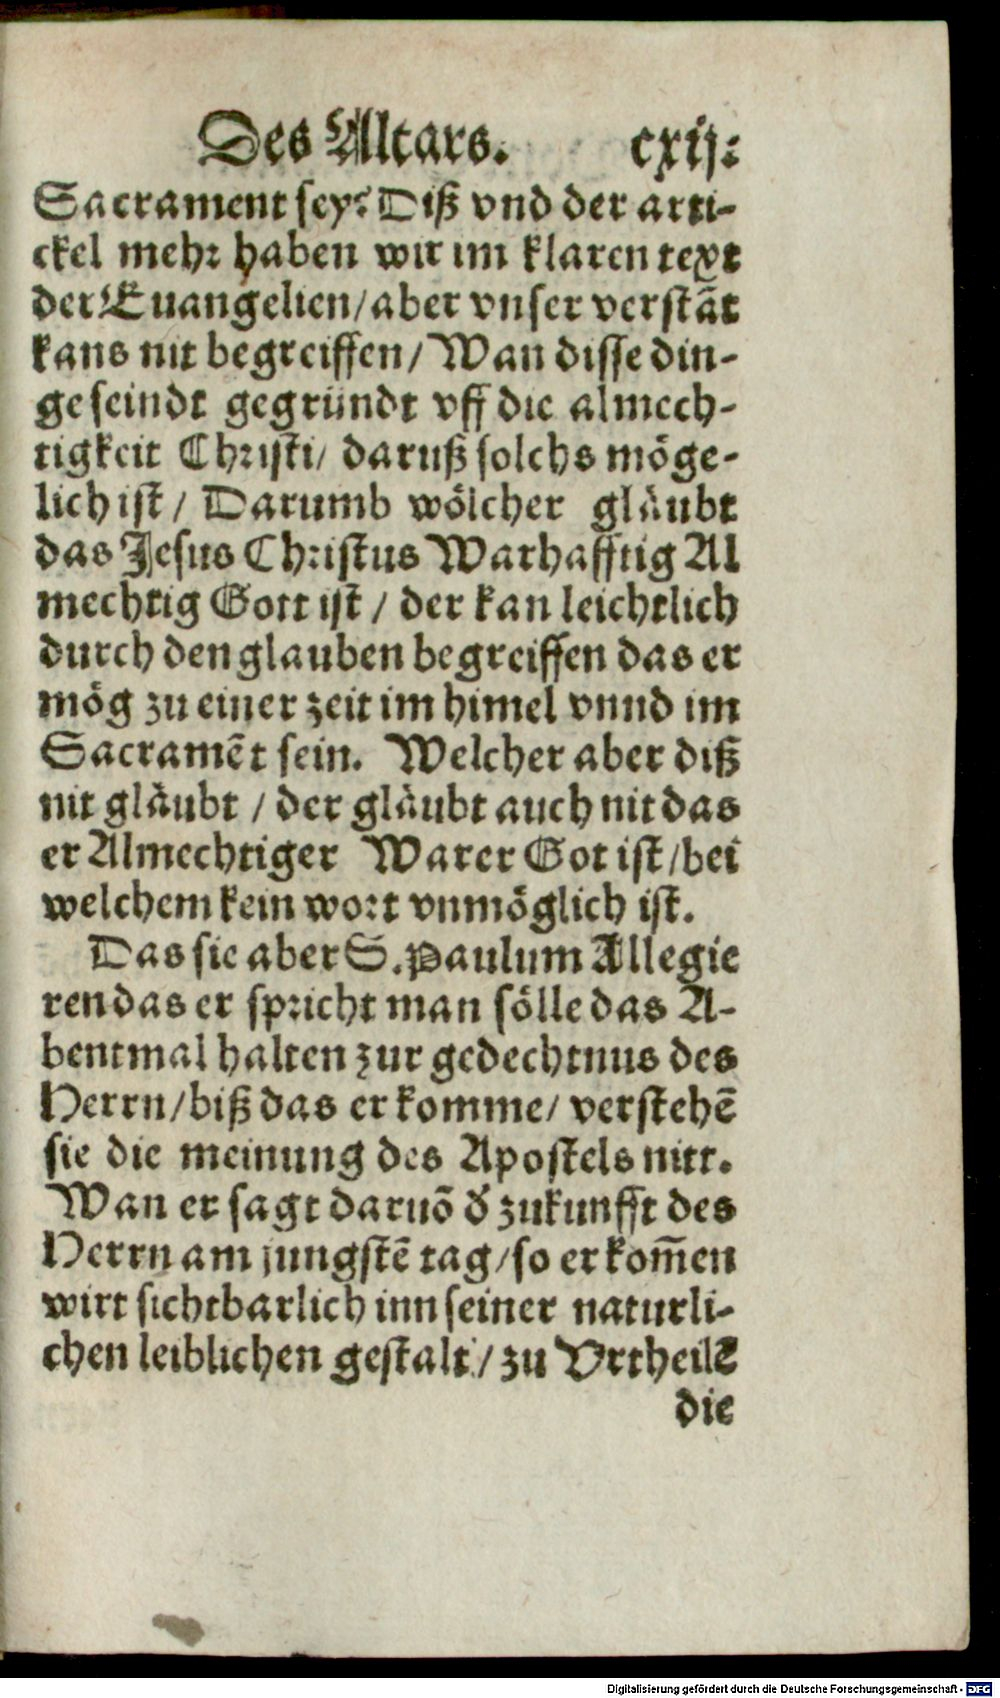 Des Altars. cxij.
Sacrament sey? Diß vnd der arti-
ckel mehr haben wir im klaren text
der Euangelien/ aber vnser verstãt
kans nit begreiffen/ Wan disse din-
ge seindt gegründt vff die almech-
tigkeit Christi/ daruß solchs möge-
lich ist/ Darumb wölcher gläubt
das Jesus Christus Warhafftig Al
mechtig Gott ist/ der kan leichtlich
durch den glauben begreiffen das er
mög zu einer zeit im himel vnnd im
Sacramẽt sein. Welcher aber diß
nit gläubt/ der gläubt auch nit das
er Almechtiger Warer Got ist/ bei
welchem kein wort vnmöglich ist.
Das sie aber S. Paulum Allegie
ren das er spricht man sölle das A-
bentmal halten zur gedechtnus des
Herrn/ biß das er komme/ verstehẽ
sie die meinung des Apostels nitt.
Wan er sagt daruõ d̓ zukunfft des
Herrn am jungstẽ tag/ so er kom̃en
wirt sichtbarlich inn seiner naturli-
chen leiblichen gestalt/ zu Vrtheilẽ
die
Digitalisierung gefördert durch die Deutsche Forschungsgemeinschaft - DFG